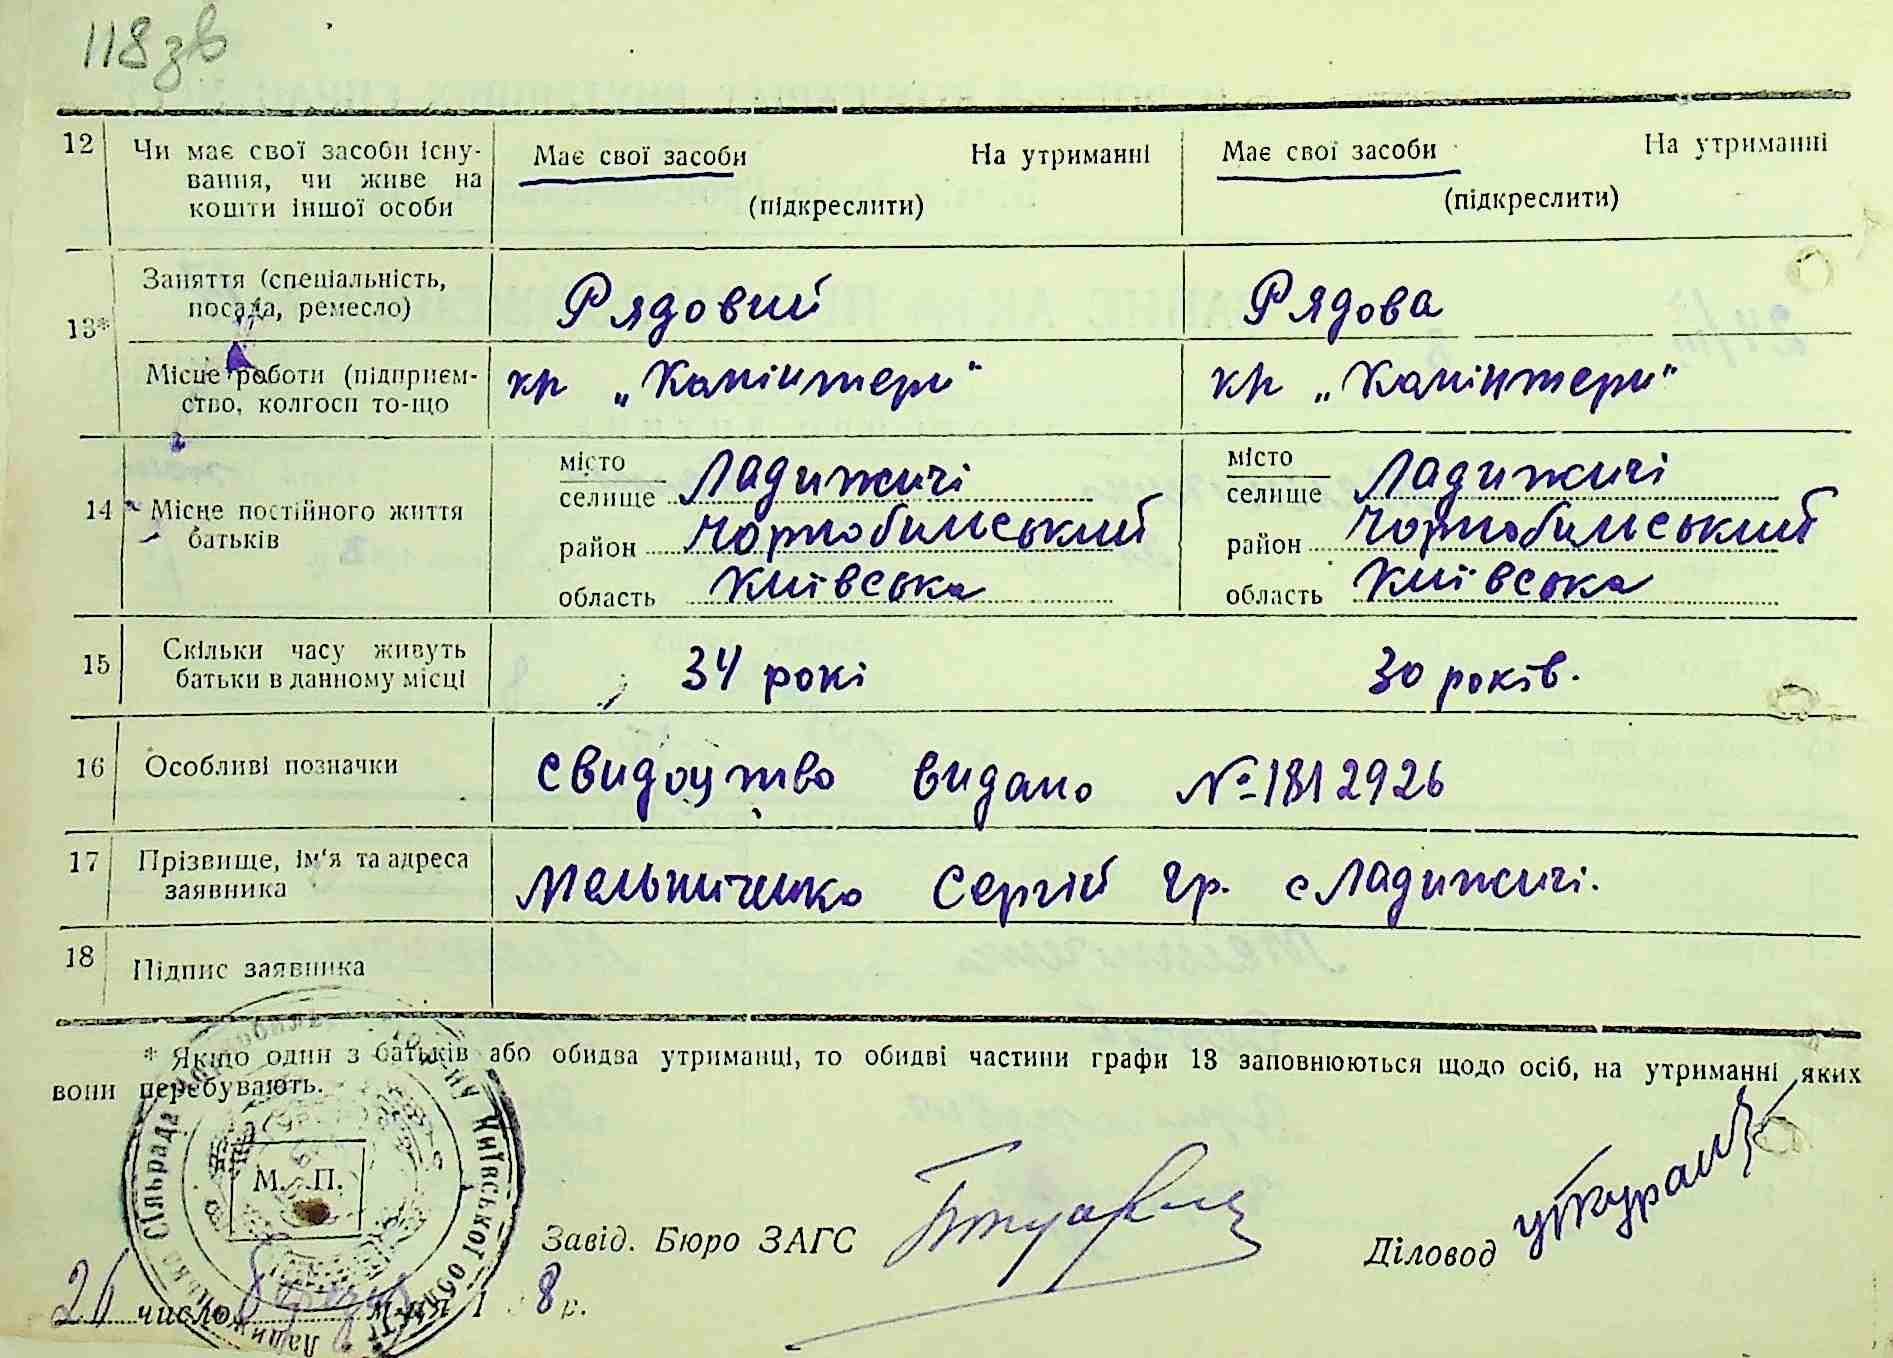 118 зв
12 Чи має свої засоби існу-
вання, чи живе на
кошти іншої особи
Має свої засоби На утриманні
(підкреслити)
Має свої засоби На утриманні
(підкреслити)
13* Заняття (спеціальність,
посада, ремесло)
Рядовий
Рядова
Місце роботи (підприєм-
ство, колгосп то-що
кр „Комінтерн"
кр „Комінтерн"
14 Місце постійного життя
батьків
місто
селище Ладижичі
район Чорнобильський
область Київська
місто
селище Ладижичі
район Чорнобильський
область Київська
15 Скільки часу живуть
батьки в данному місці
34 рокі
30 років.
16 Особливі позначки
свидоцтво видано № 1812926
17 Прізвище, ім'я та адреса
заявника
Мельниченко Сергій Гр. с Ладижичі.
18 Підпис заявника
* Якщо один з батьків або обидва утриманці, то обидві частини графи 13 заповнюються щодо осіб, на утриманні яких
вони перебувають.
М. П.
Завід. Бюро ЗАГС
Діловод
26 число м-ця 1 8 р.
Сільрада
Київської